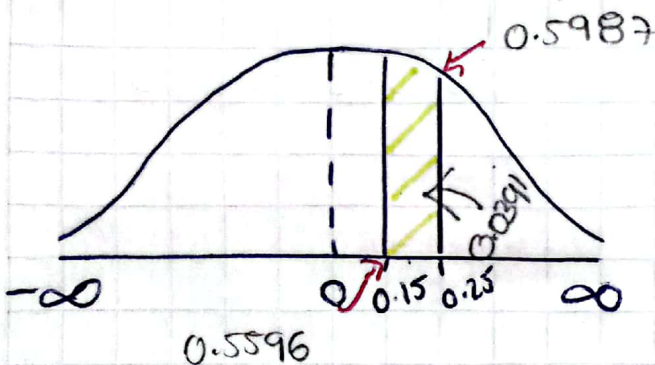 0.5987
0.0391
-∞ 0 0.15 0.25 ∞
0.5596